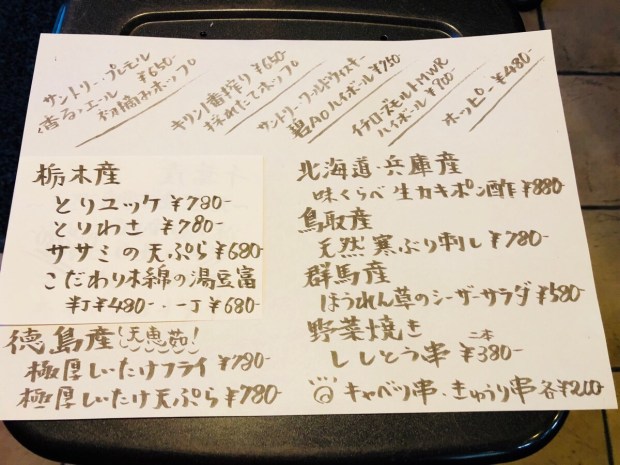 サントリー・プレモル
香るエール ¥650
初摘みホップ
キリン一番搾り ¥650
採れたてホップ
サントリー・ワールドウィスキー
碧Aoハイボール ¥750
イチローズモルトMWR
ハイボール ¥900
ホッピー ¥480-
栃木産
とりユッケ ¥780-
とりわさ ¥780-
ササミの天ぷら ¥680-
こだわり木綿の湯豆富
半丁¥480-・一丁¥680-
徳島産「天恵菇!
極厚しいたけフライ ¥780-
極厚しいたけ天ぷら ¥780
北海道・兵庫産
味くらべ 生カキポン酢 ¥880
鳥取産
天然寒ぶり刺し ¥780-
群馬産
ほうれん草のシーザーサラダ ¥580
野菜焼き
ししとう串 二本 ¥380-
キャベツ串・きゅうり串 各¥200